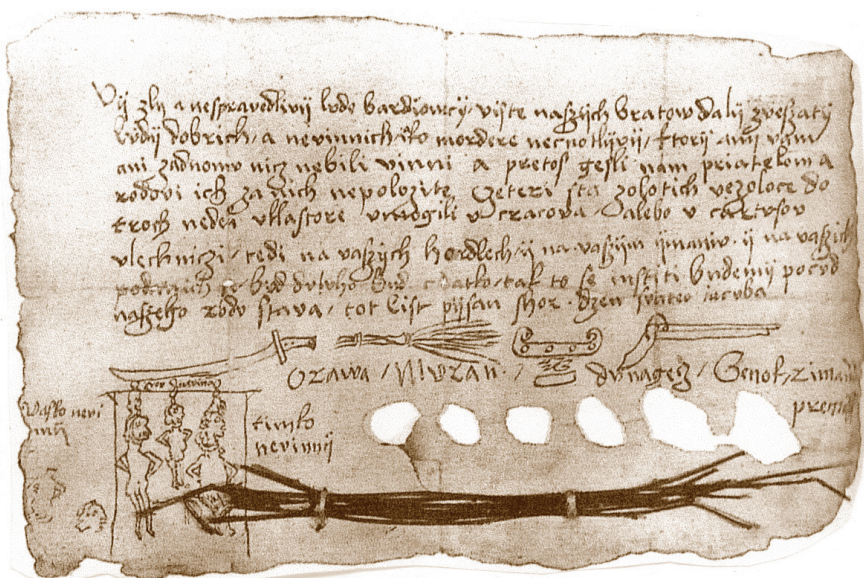 Vij zly a nespravedlivij lvde bardiowcij, vijte naszijch bratow dalij zveszatij
lvdij dobrich, a nevinnich, iko mordere necnotlijvij, ktorij anij vam
ani zadnomv nicz nebili vinni a pretos gesli nam priatelom a
rodovi ich za nich nepolozite czteri sta zolotich ve zloce do
troch nedel v klastore v mogili v cracova, alebo v cartvsov
v lechniczi, tedi na vaszijch hordlech, ij na vaszijm ijmaniv, ij na vaszich
podd
naszeho rodv stava, tot list pijsan shor. dzen svateo iacvba
orawa, mvran, dvnagecz, Senok, zimanv
premisl
Vasko nevi
nnij
timko
nevinnij